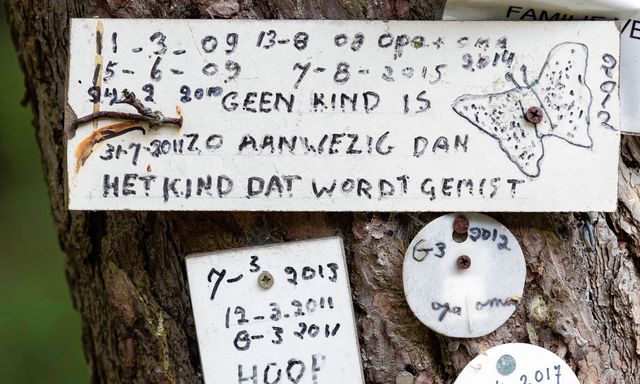 1-3-09 13-8 09 opa + oma
15-6-09 7-8-2015 2014
24-2 2010 GEEN KIND IS
31-7-2011 ZO AANWEZIG DAN
HET KIND DAT WORDT GEMIST
FAMILIE
7-3 2013
12-3-2011
6-3 2011
HOOP
6-3 2012
opa oma
2017